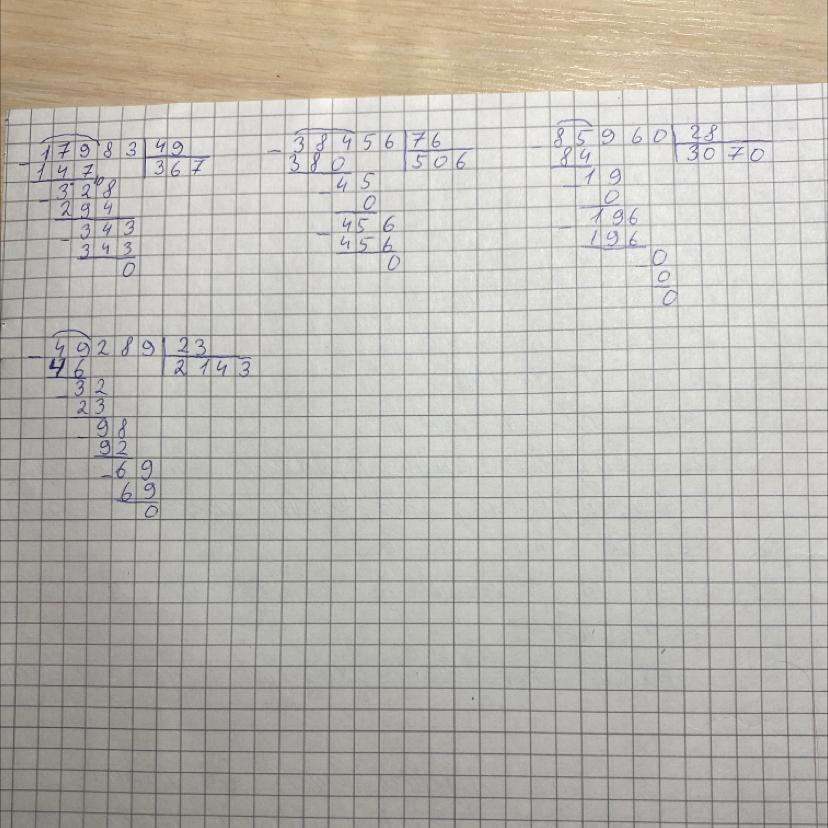 - 17983 | 49
147 | 367
- 328
294
- 343
343
0
- 38456 | 76
380 | 506
- 45
0
- 456
456
0
- 85960 | 28
84 | 3070
- 19
0
- 196
196
- 0
0
0
- 49289 | 23
46 | 2143
- 32
23
- 98
92
- 69
69
0